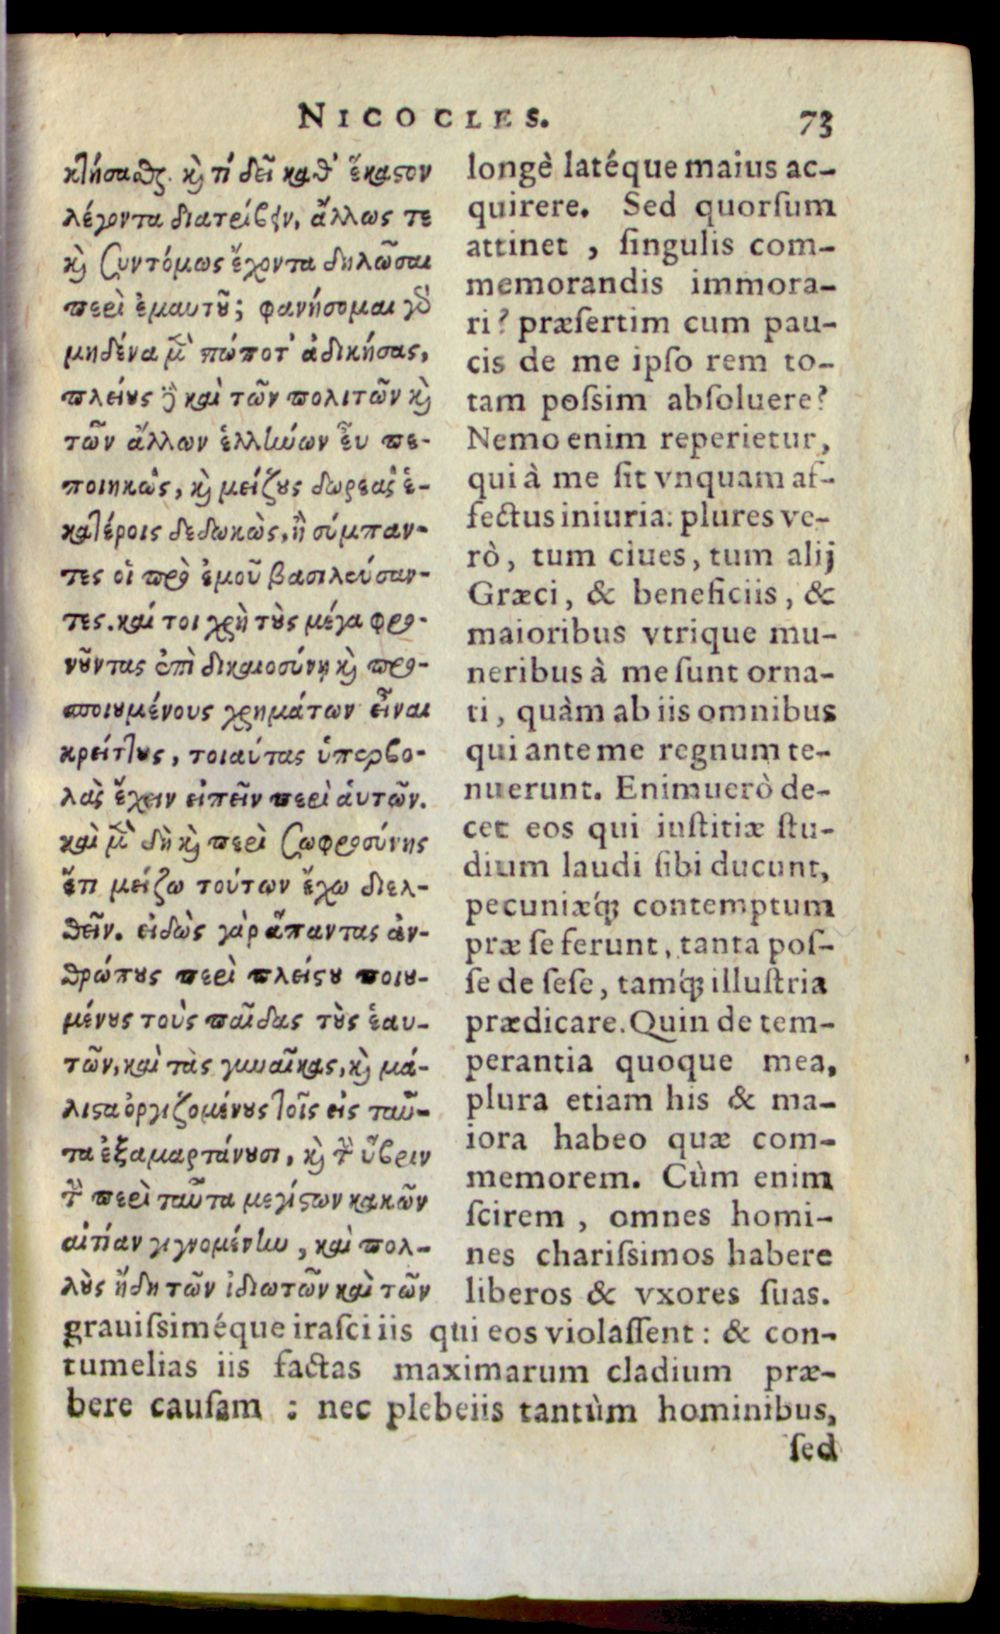 NICOCLES. 73
κτήσασθαι. καὶ τί δεῖ καθ' ἕκαστον
λέγοντα διατρίβειν, ἄλλως τε
καὶ συντόμως ἔχοντα δηλῶσαι
περὶ ἐμαυτοῦ; φανήσομαι γὰρ
μηδένα μὲν πώποτ' ἀδικήσας,
πλείους δὲ καὶ τῶν πολιτῶν καὶ
τῶν ἄλλων ἑλλήνων εὖ πε-
ποιηκὼς, καὶ μείζους δωρεὰς ἑ-
κατέροις δεδωκὼς, ἢ σύμπαν-
τες οἱ πρὸ ἐμοῦ βασιλεύσαν-
τες. καί τοι χρὴ τοὺς μέγα φρο-
νοῦντας ἐπὶ δικαιοσύνῃ καὶ προσ-
ποιουμένους χρημάτων εἶναι
κρείττους, τοιαύτας ὑπερβο-
λὰς ἔχειν εἰπεῖν περὶ αὑτῶν.
καὶ μὲν δὴ καὶ περὶ σωφροσύνης
ἔτι μείζω τούτων ἔχω διελ-
θεῖν. εἰδὼς γὰρ ἅπαντας ἀν-
θρώπους περὶ πλείστου ποιου-
μένους τοὺς παῖδας τοὺς ἑαυ-
τῶν, καὶ τὰς γυναῖκας, καὶ μά-
λιστα ὀργιζομένους τοῖς εἰς ταῦ-
τα ἐξαμαρτάνουσι, καὶ τὴν ὕβριν
τὴν περὶ ταῦτα μεγίστων κακῶν
αἰτίαν γιγνομένην, καὶ πολ-
λοὺς ἤδη τῶν ἰδιωτῶν καὶ τῶν
longè latéque maius ac-
quirere. Sed quorſum
attinet, ſingulis com-
memorandis immora-
ri? præſertim cum pau-
cis de me ipſo rem to-
tam poſsim abſoluere?
Nemo enim reperietur,
qui à me ſit vnquam af-
fectus iniuria: plures ve-
rò, tum ciues, tum alij
Græci, & beneficiis, &
maioribus vtrique mu-
neribus à me ſunt orna-
ti, quàm ab iis omnibus
qui ante me regnum te-
nuerunt. Enimuerò de-
cet eos qui iuſtitiæ ſtu-
dium laudi ſibi ducunt,
pecuniæq́; contemptum
præ ſe ferunt, tanta poſ-
ſe de ſeſe, tamq́; illuſtria
prædicare. Quin de tem-
perantia quoque mea,
plura etiam his & ma-
iora habeo quæ com-
memorem. Cùm enim
ſcirem, omnes homi-
nes chariſsimos habere
liberos & vxores ſuas.
grauiſsiméque iraſci iis qui eos violaſſent: & con-
tumelias iis factas maximarum cladium præ-
bere cauſam: nec plebeiis tantùm hominibus,
ſed